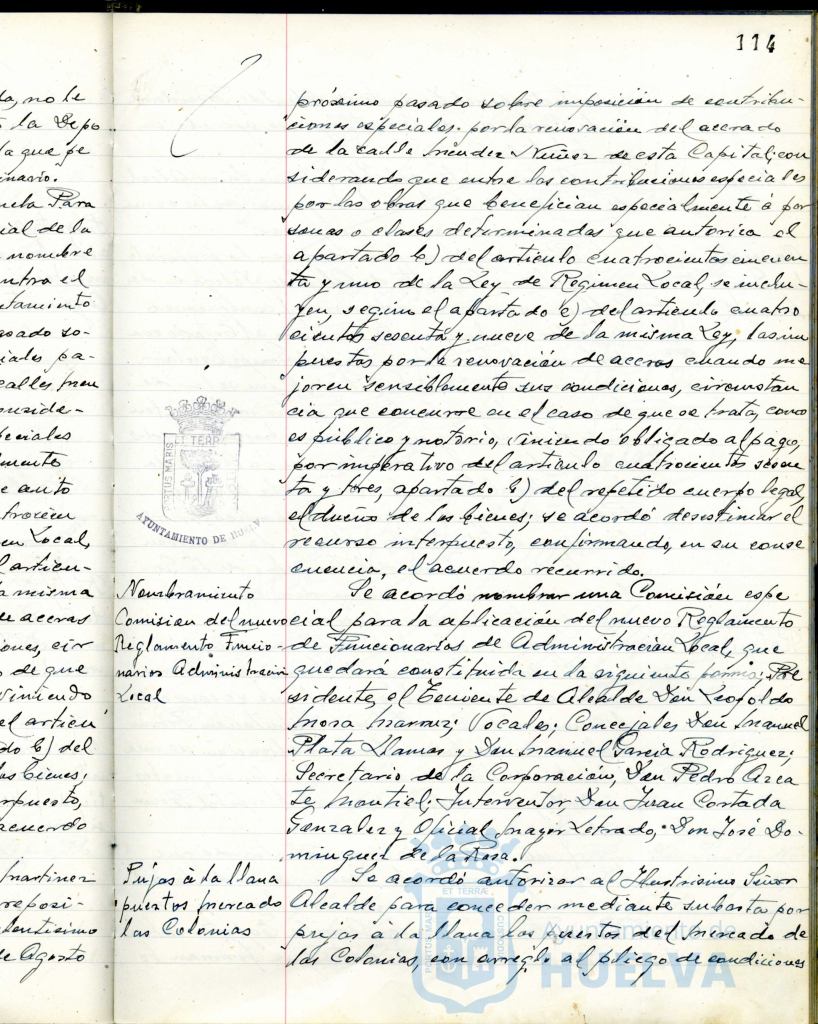 114
da, no le
s la Depo
la que pe
inario.
nela Para
ial de la
nombre
ontra el
etamiento
asado so-
iales pa-
calles Men
onside-
peciales
lmente
e auto
trocien
en Local,
l articu-
la misma
de aceras
iones, cir
o de que
viniendo
el articu
do b) del
los bienes;
rpuesto,
acuerdo
Martinez
reposi-
lentisimo
de Agosto
próximo pasado sobre imposición de contribu-
ciones especiales por la renovación del acerado
de la calle Méndez Núñez de esta Capital; con
siderando que entre las contribuciones especiales
por las obras que benefician especialmente á per
sonas o clases determinadas que autoriza el
apartado b) del artículo cuatrocientos cincuen
ta y uno de la Ley de Regimen Local, se inclu-
yen, según el apartado e) del artículo cuatro
cientos sesenta y nueve de la misma Ley, las im
puestas por la renovación de aceras cuando me
joren sensiblemente sus condiciones, circunstan
cia que concurre en el caso de que se trata, como
es público y notorio, viniendo obligado al pago,
por imperativo del artículo cuatrocientos sesen
ta y tres, apartado b) del repetido cuerpo legal,
el dueño de los bienes; se acordó desestimar el
recurso interpuesto, confirmando, en su conse
cuencia, el acuerdo recurrido.
PORTUS MARIS ET TERRÆ
AYUNTAMIENTO DE HUELVA
Nombramiento
Comision del nuevo
Reglamento Funcio-
narios Administración
Local
Se acordó nombrar una Comisión espe
cial para la aplicación del nuevo Reglamento
de Funcionarios de Administración Local, que
quedará constituida en la siguiente forma: Pre
sidente, el Teniente de Alcalde Don Leopoldo
Mora Narruz; Vocales; Concejales Don Manuel
Plata Llamas y Don Manuel Garcia Rodriguez;
Secretario de la Corporación, Don Pedro Arca
te Montiel; Interventor, Don Juan Cortada
Gonzalez y Oficial Mayor Letrado, Don José Do-
minguez de la Rosa.
Pujas à la llana
puestos mercado
las Colonias
Se acordó autorizar al Ilustrisimo Señor
Alcalde para conceder mediante subasta por
pujas a la llana los puestos del Mercado de
las Colonias, con arreglo al pliego de condiciones
PORTUS MARIS ET TERRÆ CUSTODIA
Ayuntamiento de
HUELVA